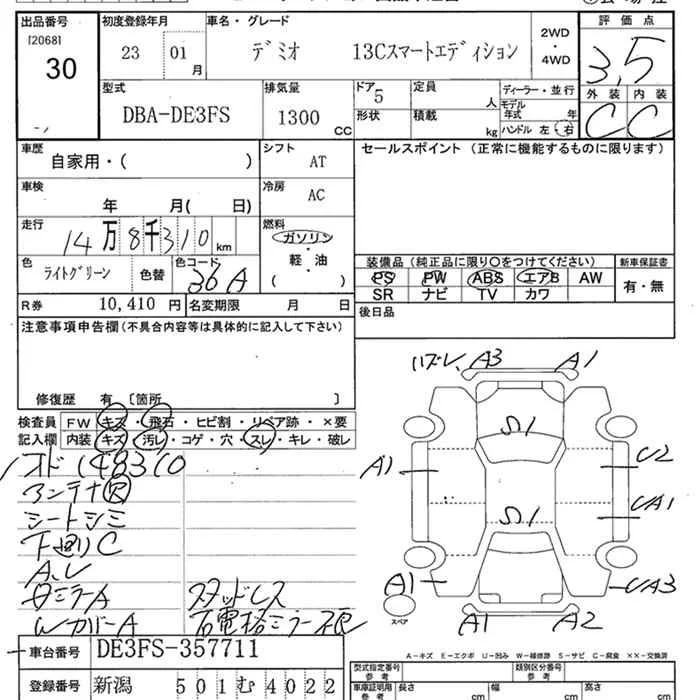 出品番号 初度登録年月 車名・グレード 2WD ・ 4WD 評価点
[2068] 30 23 01月 デミオ 13Cスマートエディション 3.5
型式 排気量 ドア 5 定員 人 ディーラー・並行 外装 内装
DBA-DE3FS 1300 CC 形状 積載 kg モデル年式 年 C C
ハンドル 左・右
車歴 自家用・( ) シフト AT セールスポイント (正常に機能するものに限ります)
車検 年 月( 日) 冷房 AC
走行 14万8千310km 燃料 ガソリン
軽・油
( )
色 ライトグリーン 色替 色コード 36A 装備品(純正品に限り〇をつけてください) 新車保証書
PS PW ABS エアB AW 有・無
SR ナビ TV カワ
R券 10,410 円 名変期限 月 日 後日品
注意事項申告欄(不具合内容等は具体的に記入して下さい)
修復歴 有〔箇所 〕
検査員 FW キズ・飛石・ヒビ割・リペア跡・×要
記入欄 内装 キズ・汚レ・コゲ・穴・スレ・キレ・破レ
メオド148310
アンテナ欠
シートシミ
下廻りC
スタッドレス
Wカバー A
ハズレ A3 A1
S1
A1 U2
S1 UA1
A1 UA3
スペア A1 A2
A-キズ E-エクボ U-凹み W-補修跡 S-サビ C-腐食 ××-交換済
車台番号 DE3FS-357711 型式指定番号 参考 類別区分番号 参考
登録番号 新潟 501 む 4022 車庫証明用 参考 長さ cm 幅 cm 高さ cm